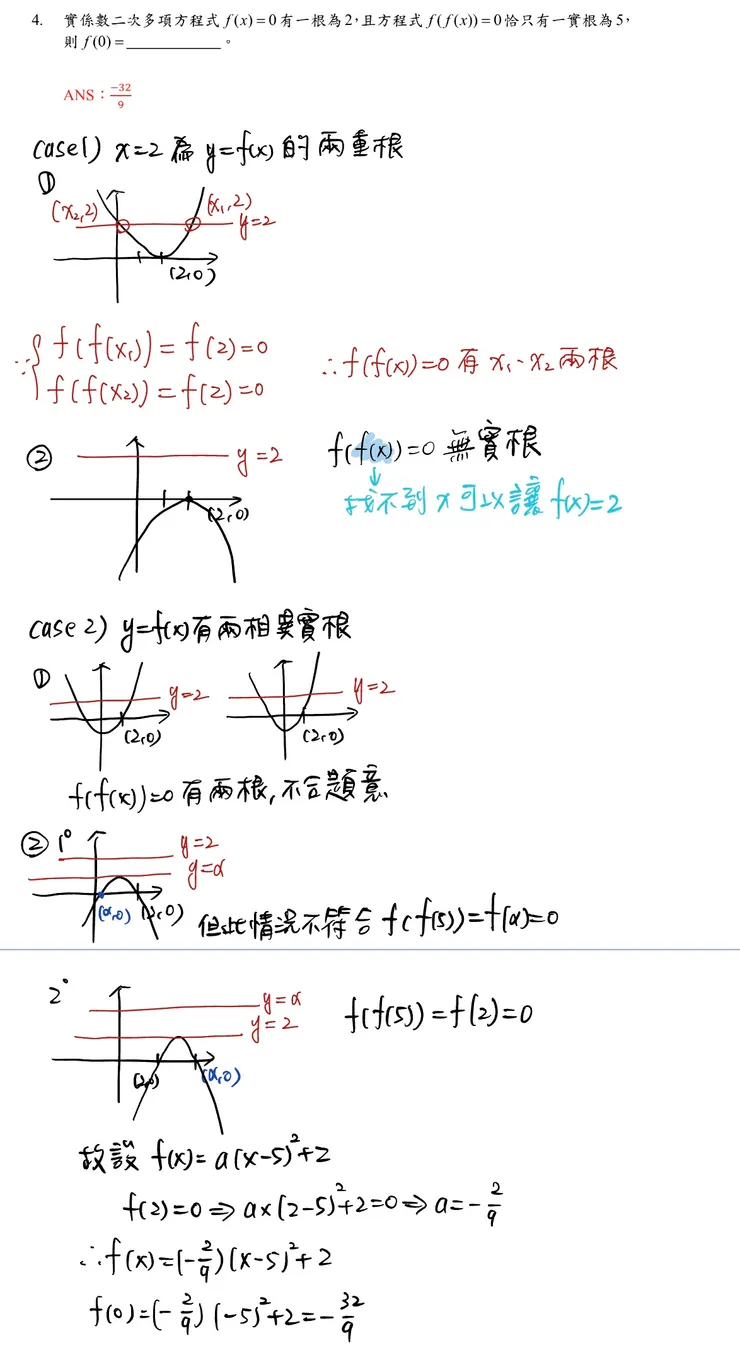 4. 實係數二次多項方程式 f(x)=0 有一根為 2,且方程式 f(f(x))=0 恰只有一實根為 5,
則 f(0)=____________。
ANS:-32/9
case1) x=2 為 y=f(x) 的兩重根
①
(x₂,2) (x₁,2)
y=2
(2,0)
∵{ f(f(x₁))=f(2)=0
f(f(x₂))=f(2)=0
∴f(f(x))=0 有 x₁、x₂ 兩根
② y=2
(2,0)
f(f(x))=0 無實根
↓
找不到 x 可以讓 f(x)=2
case 2) y=f(x)有兩相異實根
① y=2 y=2
(2,0) (2,0)
f(f(x))=0 有兩根,不合題意
② 1° y=2
y=α
(α,0) (2,0)
但此情況不符合 f(f(5))=f(α)=0
2° y=α
y=2
(2,0) (α,0)
f(f(5))=f(2)=0
故設 f(x)=a(x-5)²+2
f(2)=0⇒a×(2-5)²+2=0⇒a=-2/9
∴f(x)=(-2/9)(x-5)²+2
f(0)=(-2/9)(-5)²+2=-32/9